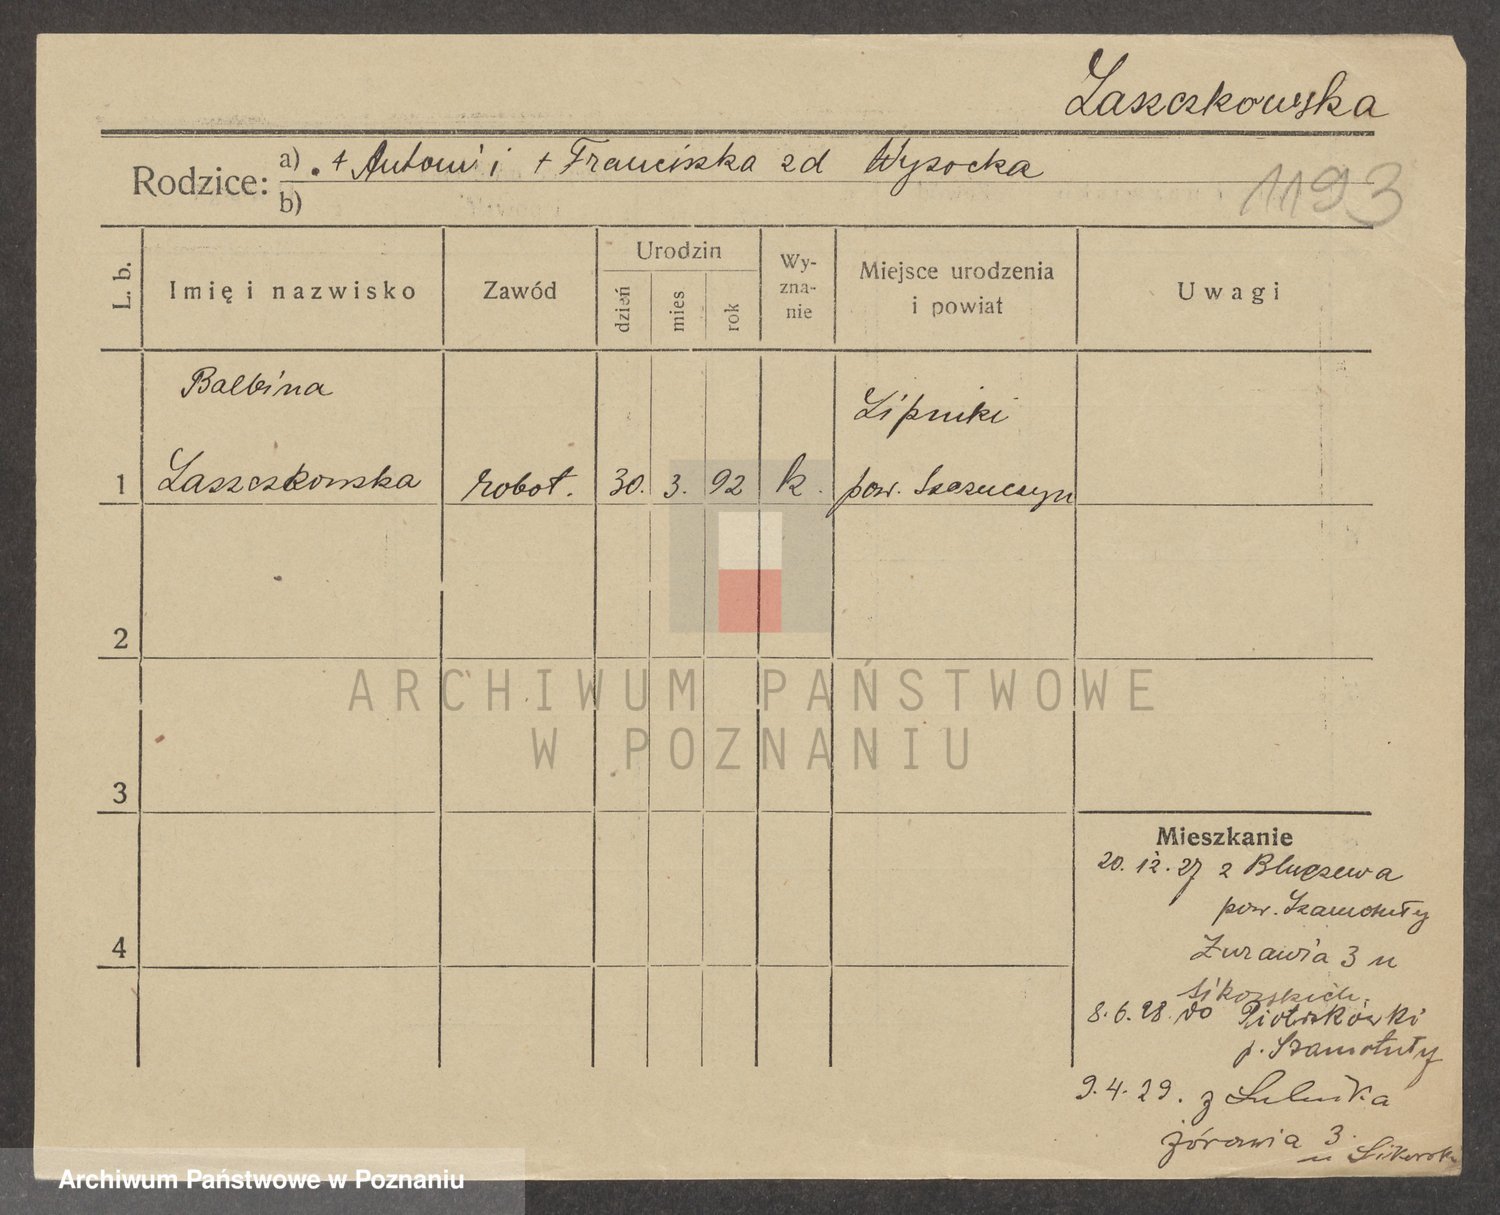 Laszczkowska
Rodzice: a) . + Antoni i + Franciszka zd Wysocka
b)
1193
L. b.
Imię i nazwisko
Zawód
Urodzin
dzień
mies
rok
Wy-
zna-
nie
Miejsce urodzenia
i powiat
Uwagi
Balbina
Lipniki
1 Laszczkowska robot. 30. 3. 92 k. pow. Szczuczyn
2
ARCHIWUM PAŃSTWOWE
W POZNANIU
3
Mieszkanie
20. 12. 27 z
pow. Szamotuły
4
Żurawia 3 u
Sikorskich.
8. 6. 28. do Piotrkówki
p. Szamotuły
9. 4. 29. z Lulinka
żórawia 3.
u
Archiwum Państwowe w Poznaniu